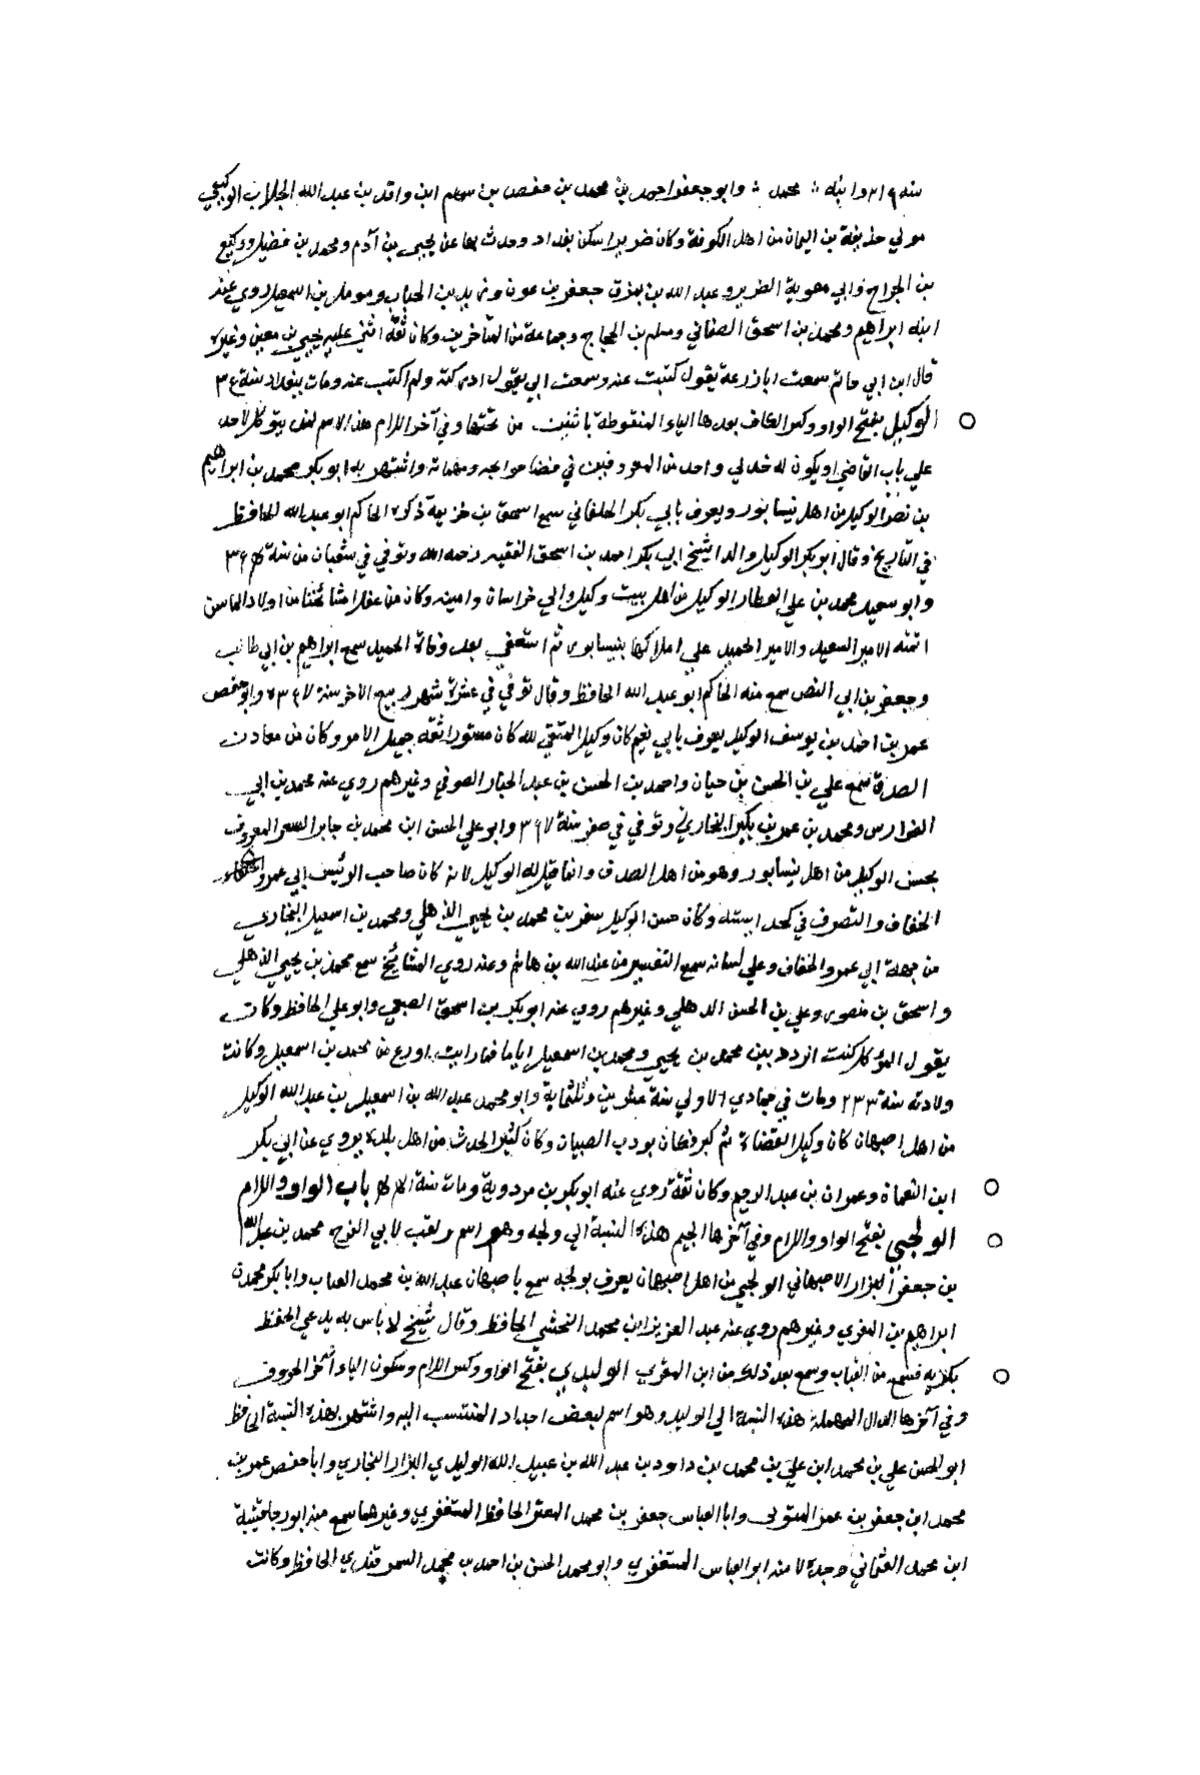 سنه ٢١٩ وابنه ∴ محمد ∴ وابو جعفر احمد بن محمد بن حفص بن مسلم ابن واقد بن عبد الله الجلاب الوكيعي
مولي حذيفة بن اليمان من اهل الكوفة وكان ضريرا سكن بغداد وحدث بها عن يحيى بن آدم ومحمد بن فضيل ووكيع
بن الجراح وابي معوية الضرير وعبد الله بن جعفر بن عون وزيد بن الحباب ومومل بن اسمعيل روي عنه
ابنه ابراهيم ومحمد بن اسحق الصغاني ومسلم بن الحجاج وجماعة من المتاخرين وكان ثقة اثني عليه يحيي بن معين وغيره
قال ابن ابي حاتم سمعت ابا زرعة يقول كتبت عنه وسمعت ابي يقول ادركته ولم اكتب عنه ومات ببغداد سنة
الوكيل بفتح الواو وكسر الكاف بعدها الياء المنقوطة باثنين من تحتها وفي آخر اللام هذا الاسم لمن يتوكل لاحد
علي باب القاضي او يكون له خدلي واحد من المعروفين في قضا حوايجه ومهماته واشتهر به ابو بكر محمد بن ابراهيم
بن نصر الوكيل من اهل نيسابور ويعرف بابي بكر الحلفاني سمع اسحق بن خزيمة ذكره الحاكم ابو عبد الله الحافظ
في التاريخ وقال ابو بكر الوكيل والد الشيخ ابي بكر احمد بن اسحق الفقيه رحمه الله وتوفي في شعبان من سنة
وابو سعيد محمد بن علي العطار الوكيل من اهل بيت وكيل والي خراسان وامينه وكان من عقلا مشائخنا من اولاد الماسن
اتمنه الامير السعيد والامير الحميد علي املاكها بنيسابور ثم استعفي بعد وفاة الحميد سمع ابراهيم بن ابي طالب
وجعفر بن ابي النصر سمع منه الحاكم ابو عبد الله الحافظ وقال توفي في عشرة شهر ربيع الاخر سنة وابو حفص
عمر بن احمد بن يوسف الوكيل يعرف بابي نعيم كان وكيل المتقي لله كان مستورا ثقة جميل الامر وكان من معادن
الصدق سمع علي بن الحسن بن حيان واحمد بن الحسن بن عبد الجبار الصوفي وغيرهم روي عنه محمد بن ابي
الفوارس ومحمد بن عمر بن بكير النجاري وتوفي في صفر سنة ٣٦٧ وابو علي الحسن ابن محمد بن جابر المعروف
بحسن الوكيل من اهل نيسابور وهو من اهل الصدق وانما قيل له الوكيل لانه كان صاحب الرئيس ابي عمرو
الخفاف والتصرف في وكان حسن الوكيل محمد بن يحيي الذهلي ومحمد بن اسمعيل البخاري
من جهة ابي عمرو الخفاف وعلي لسانه سمع التفسير من عبد الله بن هاشم وعنه روي المشائخ سمع محمد بن يحيي الذهلي
واسحق بن منصور وعلي بن الحسن الدهلي وغيرهم روي عنه ابو بكر بن اسحق الصبغي وابو علي الحافظ وكان
يقول كنت اتردد بين محمد بن يحيي ومحمد بن اسمعيل اياما فما رايت اورع من محمد بن اسمعيل وكانت
ولادته سنة ٢٣٣ ومات في جمادي الاولي سنة عشرين وثلثماية وابو محمد عبد الله بن اسمعيل بن عبد الله الوكيل
من اهل اصبهان كان وكيل القضاة ثم كبر فكان يودب الصبيان وكان كثير الحديث من اهل بلده يروي عن ابي بكر
ابن النعمان وعمران بن عبد الرحيم وكان ثقة روي عنه ابو بكر بن مردوية ومات سنة باب الواو واللام
الولجي بفتح الواو واللام وفي آخرها الجيم هذه النسبة الي ولجه وهو اسم ولقب لابي الفرج محمد بن عبد الله
بن جعفر البزار الاصبهاني الولجي من اهل اصبهان يعرف بولجه سمع باصبهان عبد الله بن محمد العباب وابا بكر محمد بن
ابراهيم بن المقري وغيرهم روي عنه عبد العزيز ابن محمد النخشبي الحافظ وقال شيخ لا باس به يدعي الحفظ
بكدية فسمع من القباب وسمع بعد ذلك من ابن المقري الوليدي بفتح الواو وكسر اللام وسكون الياء آخر الحروف
وفي آخرها الدال المهملة هذه النسبة الي الوليد وهو اسم لبعض اجداد المنتسب اليه واشتهر بهذه النسبة الحافظ
ابو الحسن علي بن محمد ابن علي بن محمد بن داود بن عبد الله بن عبيد الله الوليدي البزار النجاري وابا حفص عمر بن
محمد ابن جعفر بن عمر المتولي وابا العباس جعفر بن محمد المعتز الحافظ المستغفري وغيرهما سمع منه ابو رجا قتيبة
ابن محمد العثماني وجده لا منه ابو العباس المستغفري وابو محمد الحسن بن احمد بن محمد السمرقندي الحافظ وكانت